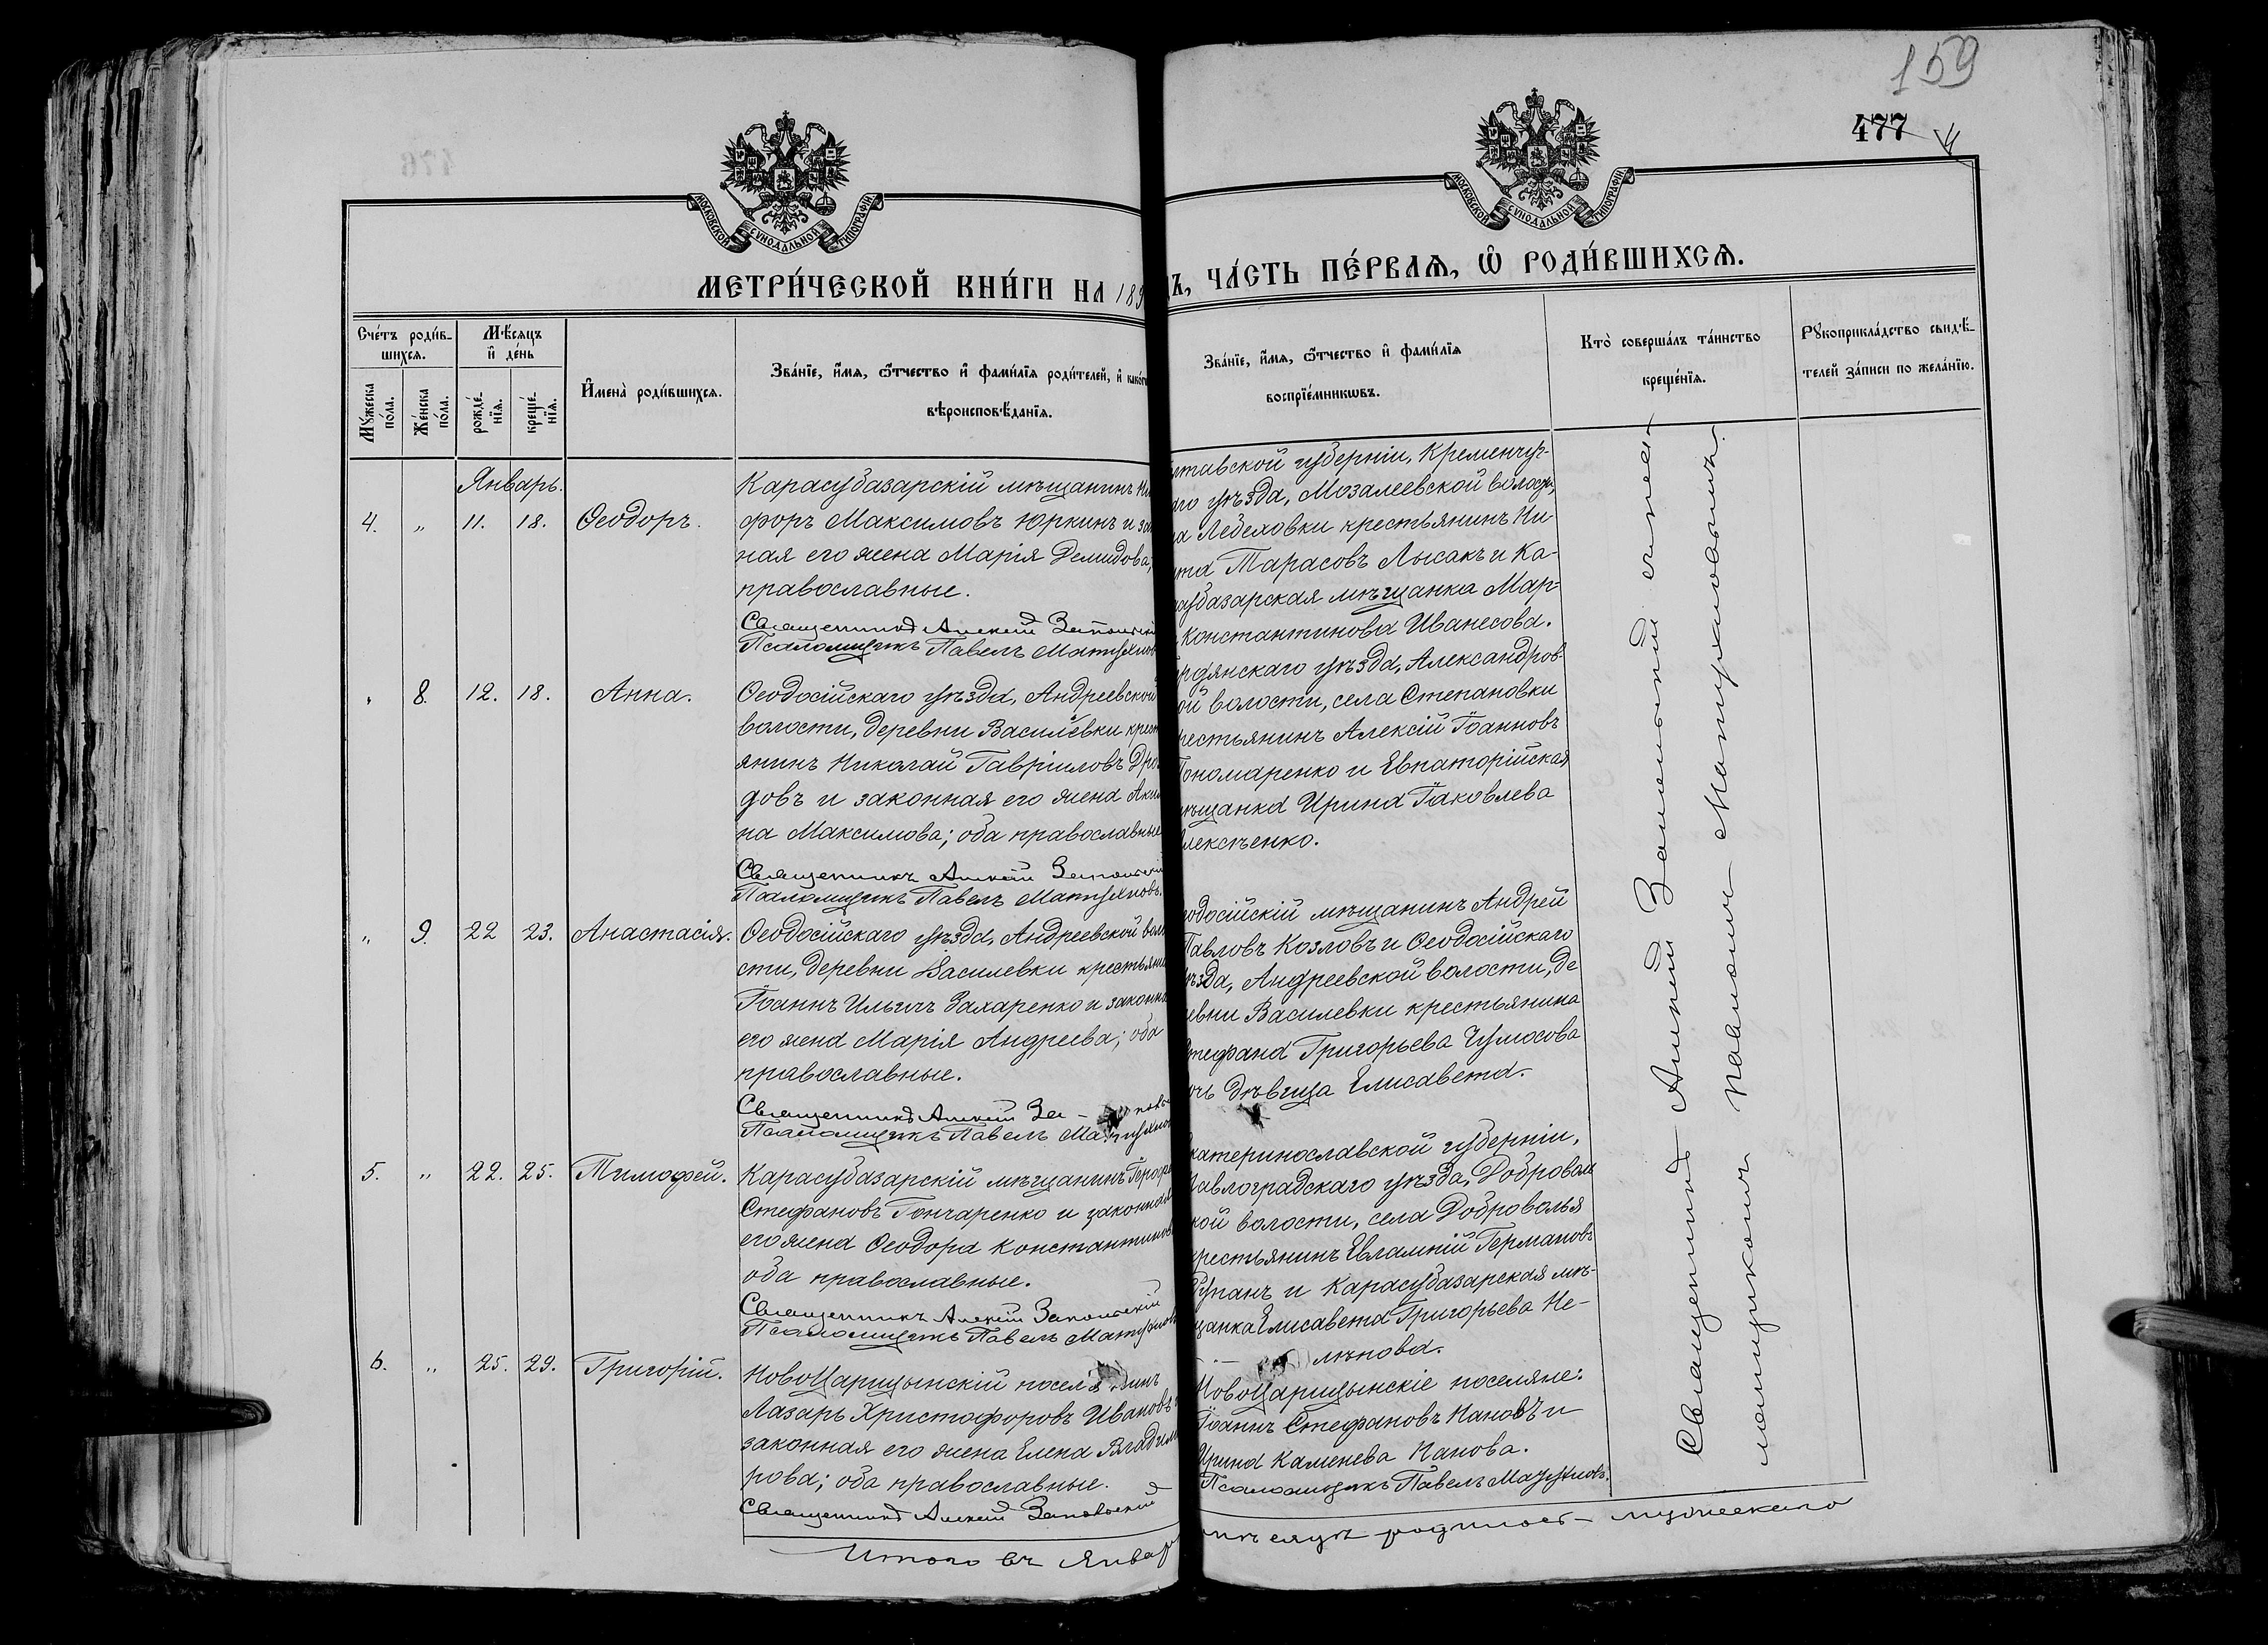 159
477
МОСКОВСКОЙ СѴНОДАЛЬНОЙ ТИПОГРАФІИ
МОСКОВСКОЙ СѴНОДАЛЬНОЙ ТИПОГРАФІИ
МЕТРИ́ЧЕСКОЙ КНИ́ГИ НА 189
ЧА́СТЬ ПЕ́РВАѦ, Ѡ РОДИ́ВШИХСѦ.
Сче́тъ роди́в-
шихся.
Мѣ́сяцъ
и де́нь
Мꙋ́жеска по́ла.
Же́нска по́ла.
рожде́-
нїя.
креще́-
нїя.
Имена̀ роди́вшихся.
Зва́нїе, и́мя, ѻ́тчество и фами́лїя роди́телей, и како́
вѣроисповѣ́данїя.
Зва́нїе, и́мя, ѻ́тчество и фами́лїя
воспрїе́мникѡвъ.
Кто̀ соверша́лъ та́инство
креще́нїя.
Рꙋкоприкла́дство свидѣ́-
телей за́писи по жела́нїю.
Январь.
4. " 11. 18. Ѳеодоръ.
Карасубазарскій мѣщанинъ Ни
форъ Максимовъ Юркинъ и за
ная его жена Марія Демидова;
православные.
Священникъ Алексій Запольскі
Псаломщикъ Павелъ Матухнов
тавской губерніи, Кременчуг-
аго уѣзда, Мозалеевской волос
а Лебеховки крестьянинъ Ни-
та Тарасовъ Лысакъ и Ка-
убазарская мѣщанка Мар-
Константинова Иванесова.
" 8. 12. 18. Анна.
Ѳеодосійскаго уѣзда, Андреевской
волости, деревни Василевки крест
янинъ Николай Гавріиловъ Дро
довъ и законная его жена Аки
на Максимова; оба православные
Священникъ Алексій Запольскі
Псаломщикъ Павелъ Матухновъ.
рдянскаго уѣзда, Александров-
ой волости, села Степановки
рестьянинъ Алексій Іоанновъ
Пономаренко и Евпаторійская
мѣщанка Ирина Іаковлева
лексѣенко.
" 9. 22 23. Анастасія.
Ѳеодосійскаго уѣзда, Андреевской вол
сти, деревни Василевки крестьяни
Іоаннъ Ильичъ Захаренко и законн
его жена Марія Андреева; оба
православные.
Священникъ Алексій За-
Псаломщикъ Павелъ Матухнов
одосійскій мѣщанинъ Андрей
Павловъ Козловъ и Ѳеодосійскаго
ѣзда, Андреевской волости, де
евни Василевки крестьянина
тефана Григорьева Чумосова
чь дѣвица Елисавета.
5. " 22. 25. Тимофей.
Карасубазарскій мѣщанинъ Героф
Стефановъ Гончаренко и законная
его жена Ѳеодора Константинов
оба православные.
Священникъ Алексій Запольскій
Псаломщикъ Павелъ Матухнов
катеринославской губерніи,
Павлоградскаго уѣзда, Доброволь
кой волости, села Доброволья
крестьянинъ Евлампій Германовъ
и Карасубазарская мѣ-
щанка Елисавета Григорьева Не-
мѣнова.
6. " 25. 29. Григорій.
НовоЦарицынскій поселянинъ
Лазарь Христофоровъ Ивановъ
законная его жена Елена Владими
рова; оба православные.
Священникъ Алексій Запольскій
НовоЦарицынскіе поселяне:
Іоаннъ Стефановъ Пановъ и
Ирина Каменева Панова.
Псаломщикъ Павелъ Матухновъ.
Священникъ Алексій Запольскій съ пса-
ломщикомъ Павломъ Матухновымъ.
Итого въ Январ мѣсяцѣ родилось мужескаго